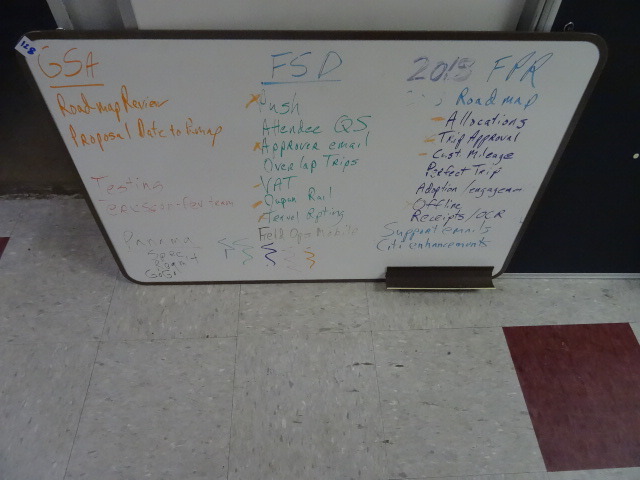 128
GSA
Roadmap Review
Proposal Date to
Testing
team
FSD
Push
Attendee QS
Approver email
Overlap Trips
VAT
Rail
Travel
Mobile
2018 FPR
Roadmap
Allocations
Trip Approval
Cust Mileage
Perfect Trip
Adoption/engagemen
Offline
Receipts/OCR
Support emails
Citi enhancements